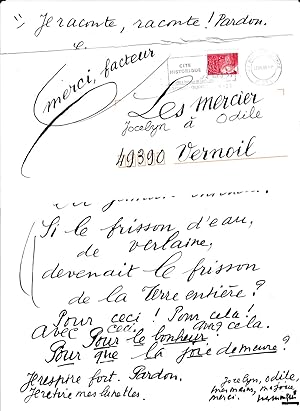 Je raconte, raconte ! Pardon.
merci, facteur
CITE
HISTORIQUE
Les Mercier
Jocelyn à Odile
49390 Vernoil
Si le frisson d'eau,
de verlaine,
devenait le frisson
de la Terre entière ?
Pour ceci ! Pour cela !
avec ceci, avec cela.
Pour le bonheur !
Pour que la joie demeure ?
Je respire fort. Pardon.
Je retire mes lunettes.
Jocelyn, odile,
mes mains, ma joie,
merci.